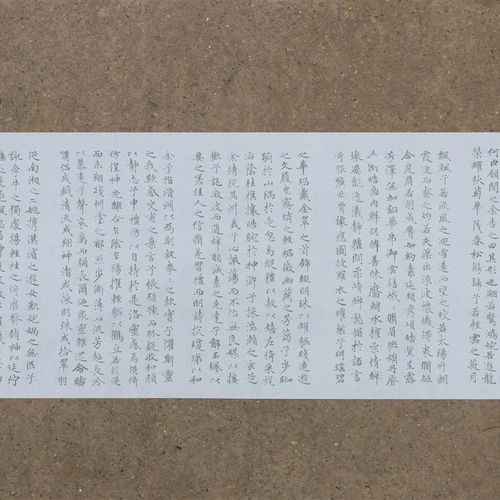 願聞之余告之曰其形也翩若驚鴻婉若遊龍
榮曜秋菊華茂春松髣髴兮若輕雲之蔽月
飄颻兮若流風之迴雪遠而望之皎若太陽升朝
霞迫而察之灼若芙蕖出淥波襛纖得衷脩短
合度肩若削成腰如約素延頸秀項皓質呈露
芳澤無加鉛華弗御雲髻峨峨脩眉聯娟丹脣
外朗皓齒內鮮明眸善睞靨輔承權
瓌姿艷逸儀靜體閑柔情綽態媚於語言
奇服曠世骨像應圖披羅衣之璀粲兮珥瑤碧
之華琚戴金翠之首飾綴明珠以耀軀踐遠遊
之文履曳霧綃之輕裾微幽蘭之芳藹兮步踟
躕於山隅於是忽焉縱體以遨以嬉左倚采旄
右蔭桂旗攘皓腕於神滸兮采湍瀨之玄芝
余情悅其淑美兮心振蕩而不怡無良媒以接
歡兮託微波而通辭願誠素之先達兮解玉珮以
要之嗟佳人之信脩羌習禮而明詩抗瓊珶以和
余兮指潛淵以為期執眷眷之款實兮懼斯靈
之我欺感交甫之棄言兮悵猶豫而狐疑收和顏
以靜志兮申禮防以自持於是洛靈感焉徙倚
彷徨神光離合乍陰乍陽擢輕軀以鶴立若將飛
而未翔踐椒塗之郁烈兮步蘅薄而流芳超長吟
以慕遠兮聲哀厲而彌長爾迺衆靈雜遝命疇
嘯侶或戲清流或翔神渚或采明珠或拾翠羽
從南湘之二妃攜漢濱之遊女歎匏媧之無匹兮
詠牽牛之獨處揚輕袿之猗靡翳脩袖以延佇